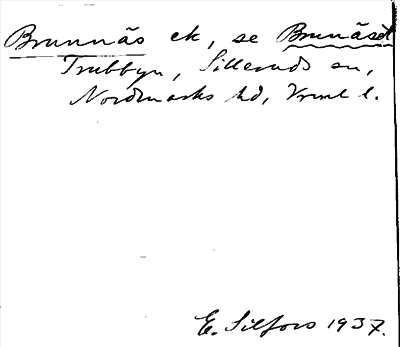 Brunnäs ek, se Brunåset
Trubbyn, Silleruds sn,
Nordmarks hd, Vrml l.
E. Silfors 1937.